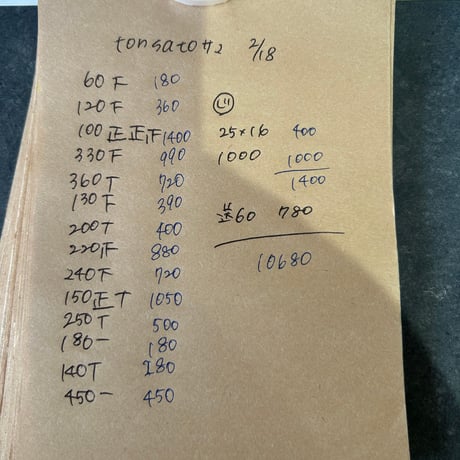 2/18
60 下 180
120 下 360
100 正正正 1400
330 下 990
360 T 720
130 下 390
200 T 400
220 正 880
240 下 720
150 正 T 1050
250 T 500
180 一 180
140 T 280
450 一 450
25×16 400
1000 1000
1400
送60 780
10680